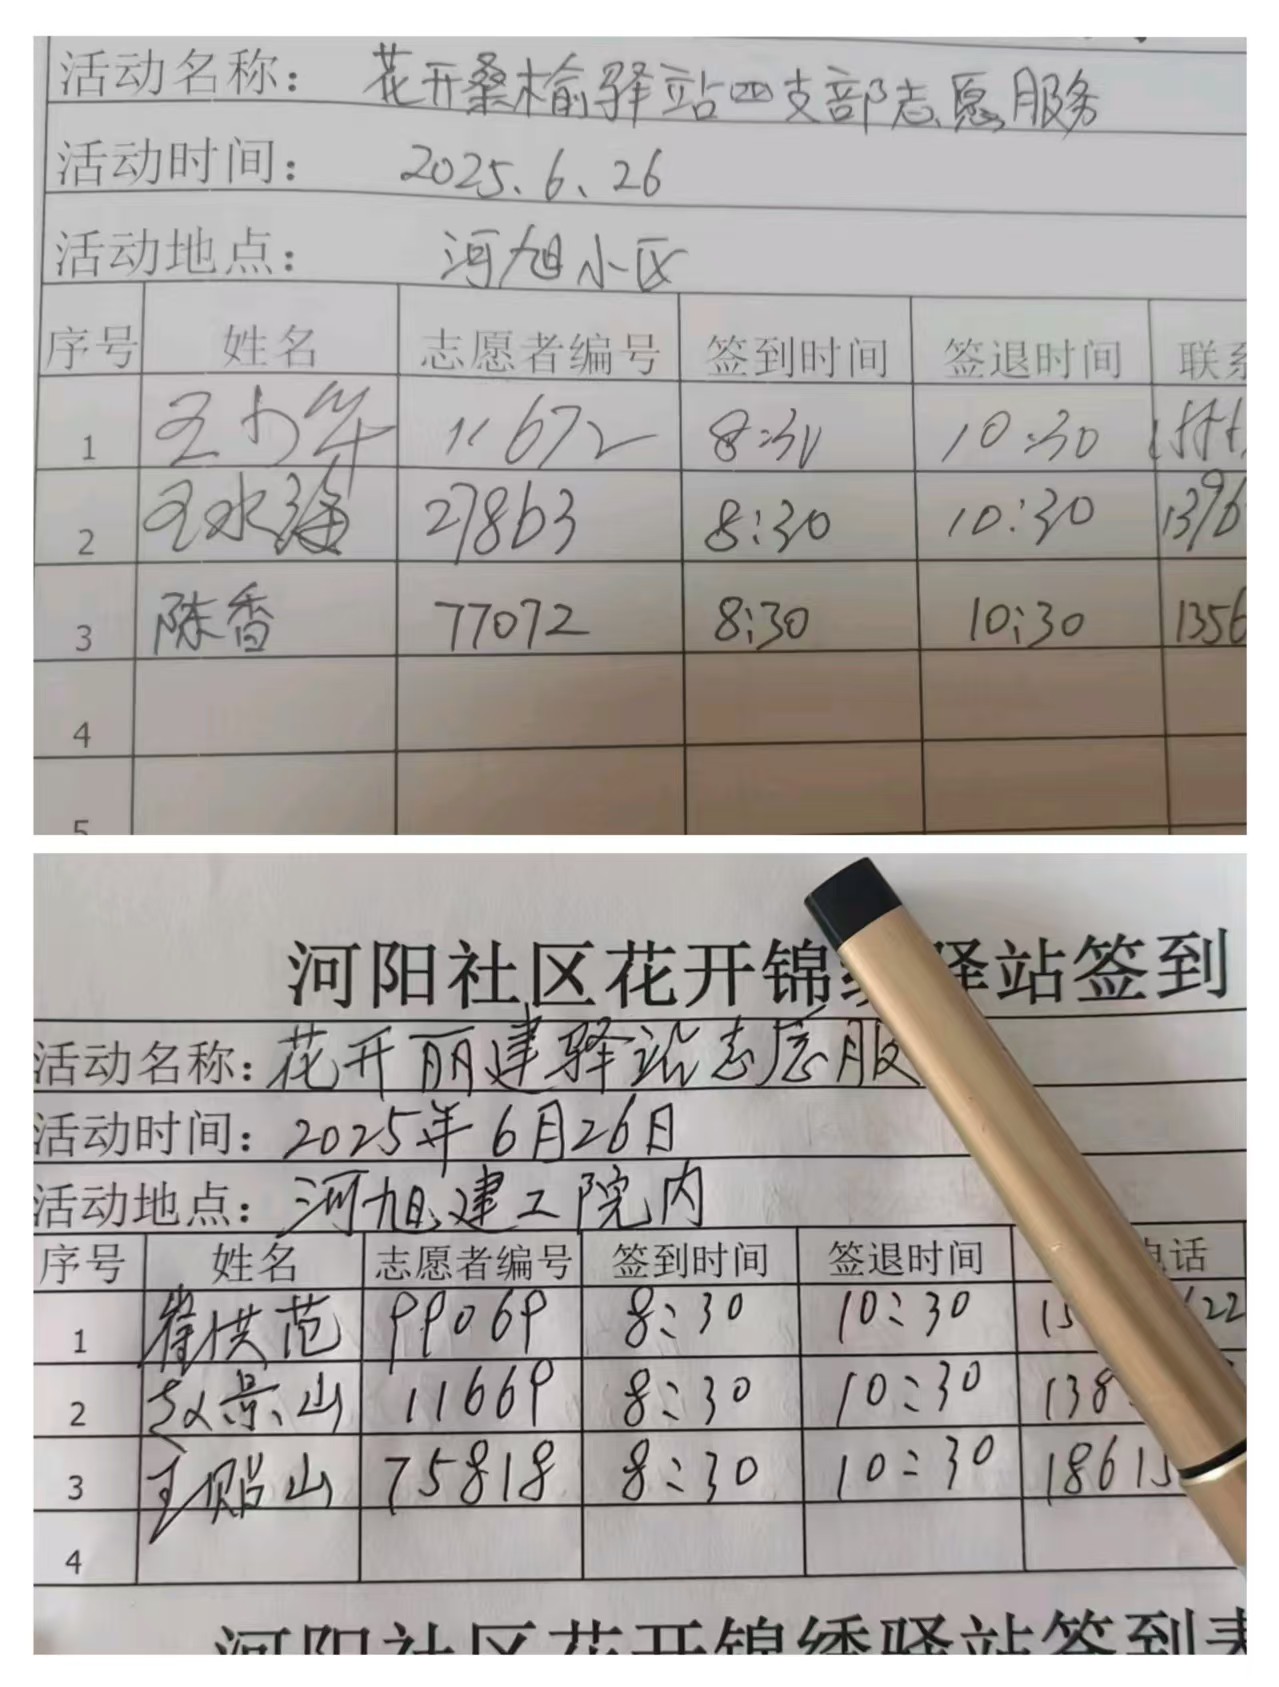 活动名称： 花开桑榆驿站四支部志愿服务
活动时间： 2025.6.26
活动地点： 河旭小区
序号 姓名 志愿者编号 签到时间 签退时间 联系
1 11672 8:30 10:30
2 王水海 27863 8:30 10:30 1396
3 陈香 77072 8:30 10:30 1356
4
5
河阳社区花开锦绣驿站签到
活动名称：花开丽建驿站志愿服
活动时间：2025年6月26日
活动地点：河旭建工院内
序号 姓名 志愿者编号 签到时间 签退时间 电话
1 崔洪范 99069 8:30 10:30 15 622
2 赵景山 11669 8:30 10:30 138
3 王贻山 75818 8:30 10:30 18615
4
河阳社区花开锦绣驿站签到表